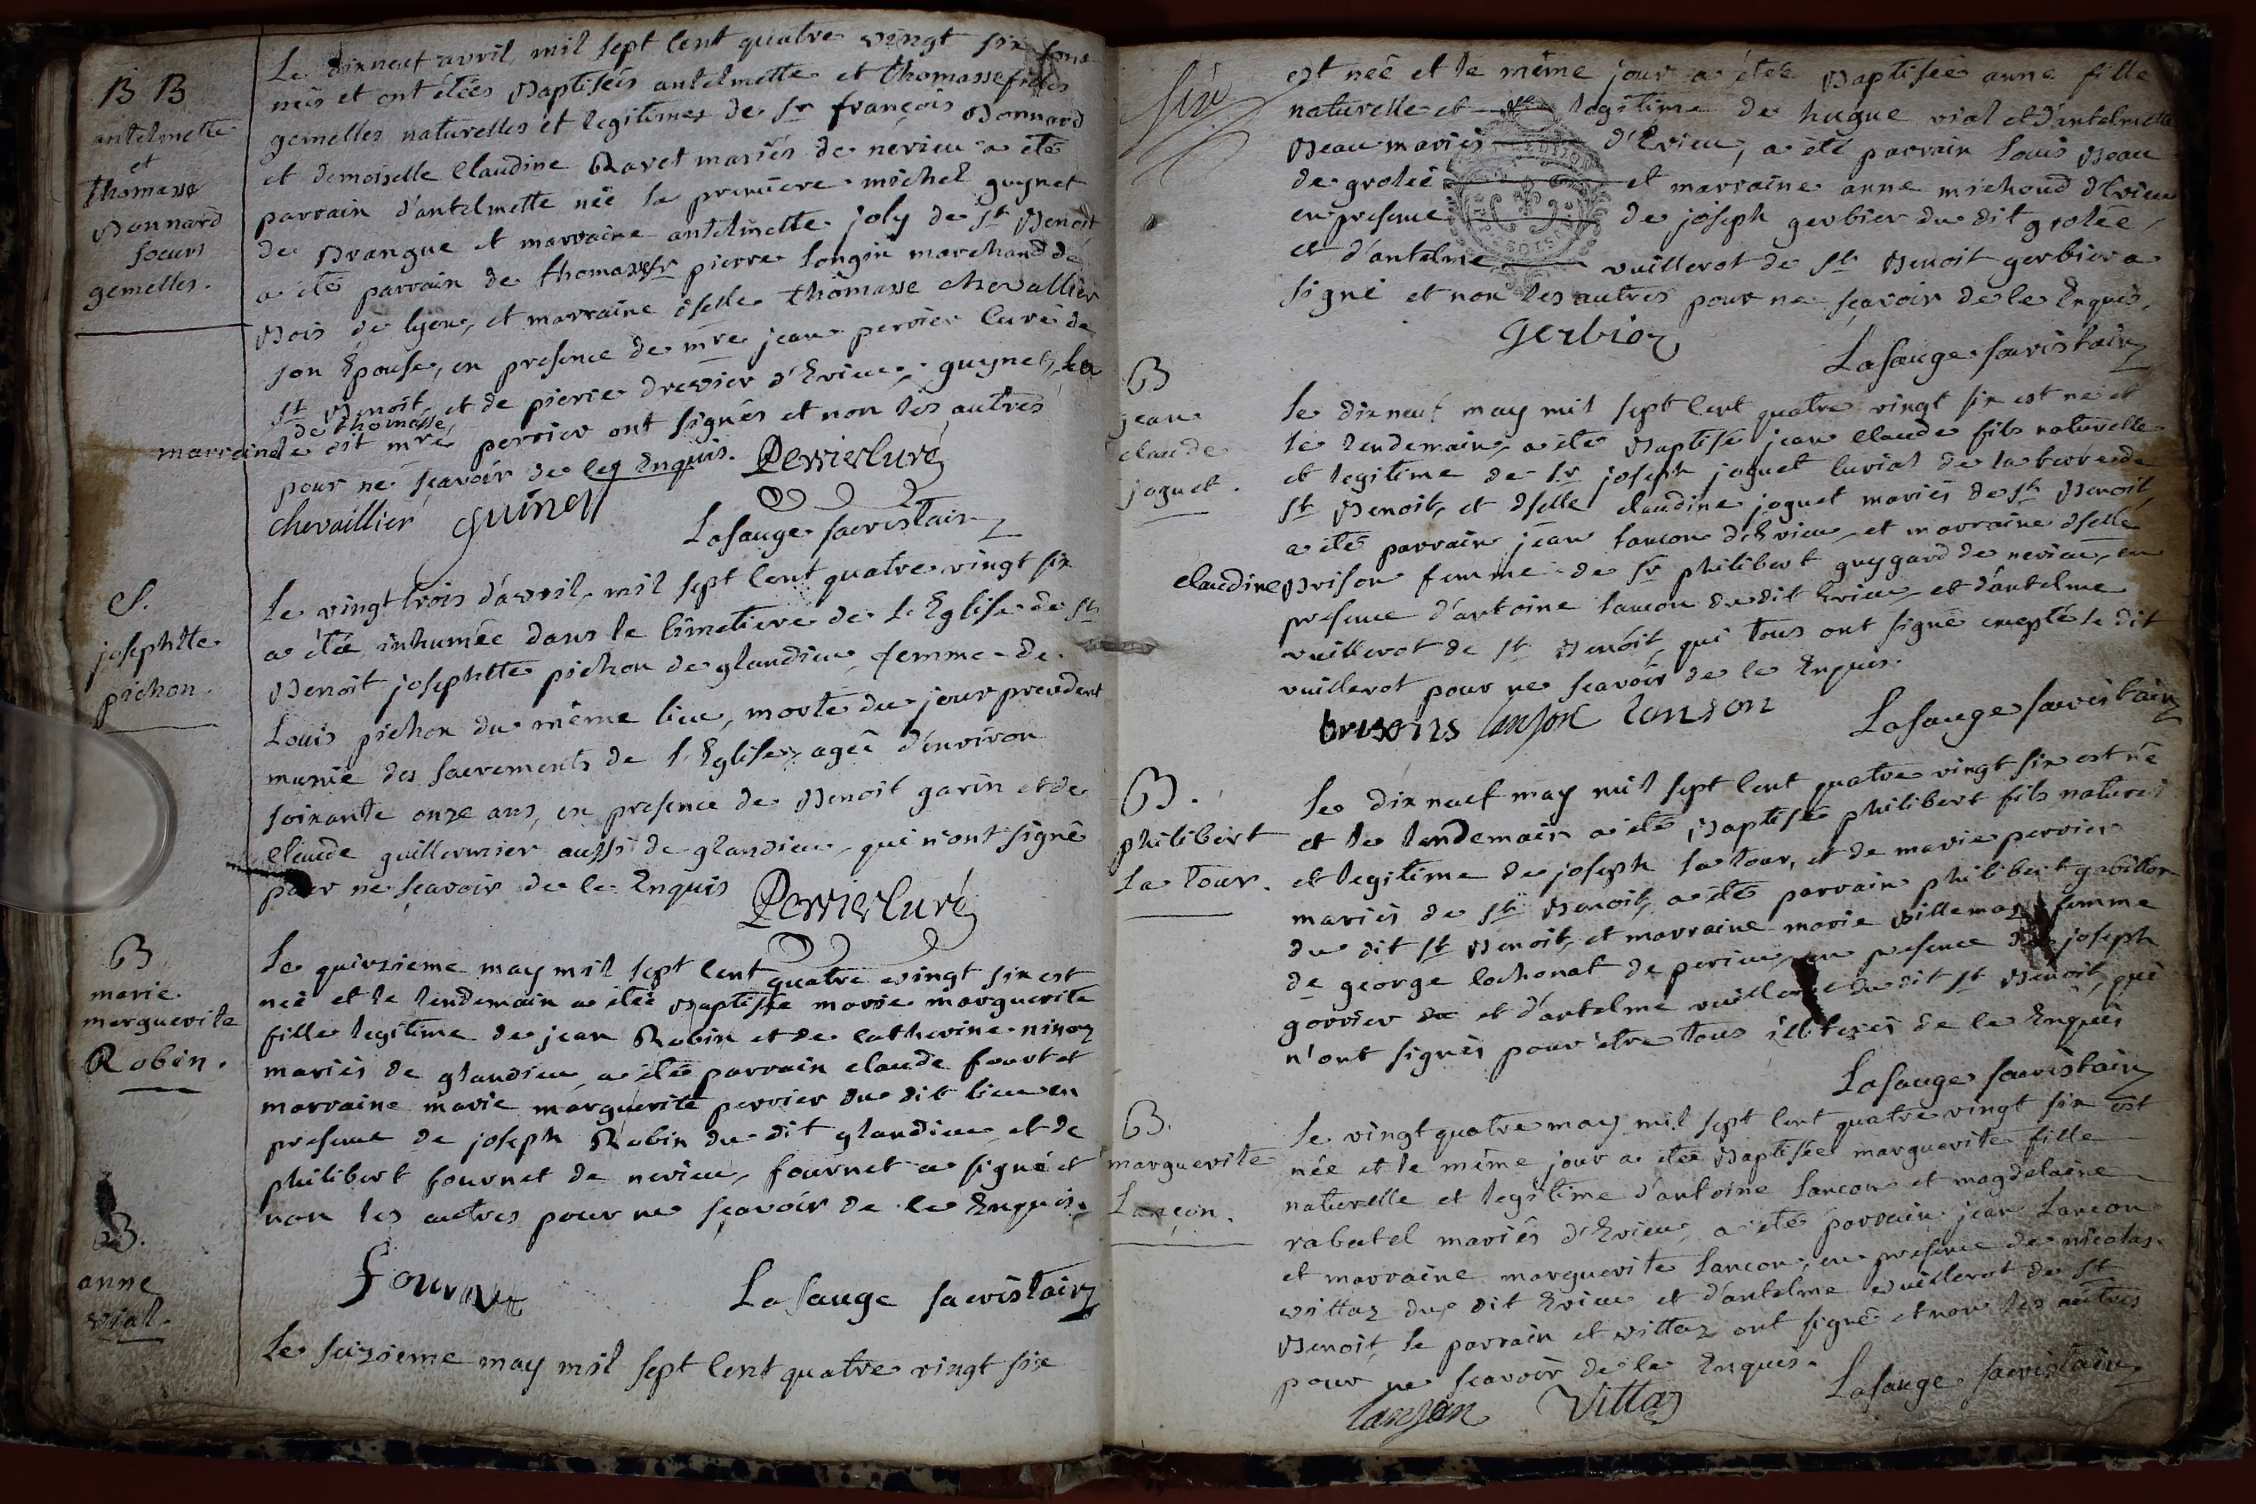 B B
antelmette
et
thomasse
Bonnard
soeurs
gemelles.
Le dixneuf avril, mil sept cent quatre vingt six sont
néis et ont étées Baptisées antelmette et thomasse filles
gemelles naturelles et legitimes de Sr françois Bonnard
et demoiselle Claudine Ravet mariés de nevieu a été
parrain d'antelmette néé la premiere michel guynet
de Brangue et marraine antelmette joly de St Benoit
a été parrain de thomasse Sr pierre longin marchand de
Bois de lyon, et marraine dselle thomasse chevallier
son Epouse, en presence de mre jean perrier Curé de
St Benoit, et de pierre drevier d'Evieu, guynet, la
marraine de thomasse,
le dit mre perrier ont signés et non les autres
pour ne sçavoir de ce Enquis. Perrier Curé
chevaillier guinet
Lasauge sacristain
S.
josephte
pichon.
Le vingt trois d'avril, mil sept cent quatre vingt six
a étée inhumée dans le cimetiere de l'Eglise de St
Benoit josephte pichon de glandieu, femme de
Louis pichon du même lieu, morte du jour precedent
munie des sacrements de l'Eglise, agée d'environ
soixante onze ans, en presence de Benoit garin et de
Claude guillermier aussi de glandieu, qui n'ont signé
pour ne sçavoir de ce Enquis Perrier Curé
B
marie
marguerite
Robin.
Le quinzieme may mil sept cent quatre vingt six est
néé et le lendemain a étée Baptisée marie marguerite
fille legitime de jean Robin et de Catherine ninoz
mariés de glandieu, a été parrain claude
marraine marie marguerite perrier du dit lieu en
presence de joseph Robin du dit glandieu et de
philibert fournet de nevieu, fournet a signé et
non les autres pour ne sçavoir de ce Enquis.
fournet Lasauge sacristain
B.
anne
vial.
Le seizieme may mil sept cent quatre vingt six
six
est néé et le même jour a étée Baptisée anne fille
naturelle et legitime de hugue vial et d'antelmette
Beau mariés d'Evieu, a été parrain Louis Beau
de grolée et marraine anne michoud d'Evieu
en presence de joseph gerbier du dit grolée,
et d'antelme vuillerot de St Benoit gerbier a
signé et non les autres pour ne sçavoir de ce Enquis.
gerbier
Lasauge sacristain
B
jean
claude
joguet.
Le dixneuf may mil sept cent quatre vingt six est né et
le lendemain a été Baptisé jean Claude fils naturelle
et legitime de Sr joseph joguet de la terre de
St Benoit, et dselle claudine joguet mariés de St Benoit,
a été parrain jean lancon d'Evieu, et marraine dselle
claudine Brison femme de Sr philibert guygard de nevieu, en
presence d'antoine lancon du dit Evieu et d'antelme
vuillerot de St Benoit, qui tous ont signé excepté le dit
vuillerot pour ne sçavoir de ce Enquis.
brisons lanson lanson
Lasauge sacristain
B.
philibert
La Tour.
Le dixneuf may mil sept cent quatre vingt six est né
et le lendemain a été Baptisé philibert fils naturel
et legitime de joseph la tour, et de marie perrier
mariés de St Benoit, a été parrain philibert gabillon
du dit St Benoit, et marraine marie villemaz femme
de george lochonat de perieu, en presence de joseph
gorrier et d'antelme vuillerot du dit St Benoit, qui
n'ont signés pour être tous illiterés de ce Enquis
Lasauge sacristain
B.
marguerite
Lançon.
Le vingt quatre may mil sept cent quatre vingt six est
née et le même jour a étée Baptisée marguerite fille
naturelle et legitime d'antoine lancon et magdelaine
rabatel mariés d'Evieu, a été parrain jean lancon
et marraine marguerite lancon, en presence de nicolas
villaz du dit Evieu et d'antelme vuillerot de St
Benoit, le parrain et villaz ont signé et non les autres
pour ne sçavoir de ce Enquis.
Lasauge sacristain
lanson Villaz